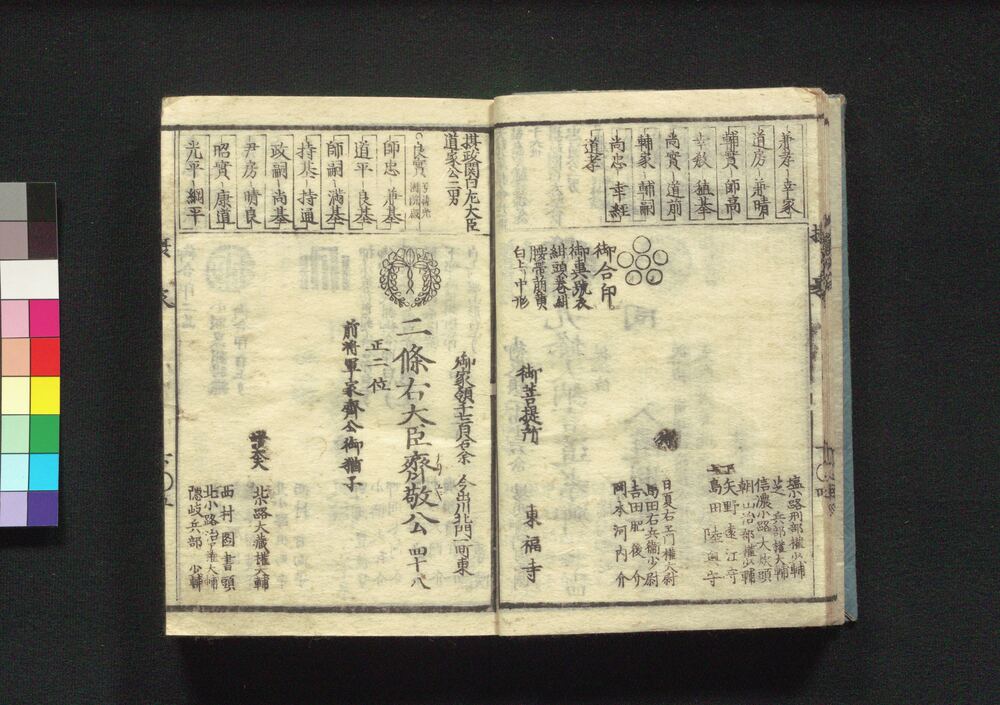 兼孝 幸家
道房 兼晴
輔實 師高
幸教 稙基
尚實 道前
輔家 輔嗣
尚忠 幸經
道孝
御合印
御輿舁衣
紺頭巻紺
腰帯前黄
白上リ中形
御菩提所
東福寺
塩小路刑部權少輔
芝 兵部權大輔
信濃小路大炊頭
朝山治部權少輔
矢野遠江守
島田陸奥守
日夏右ヱ門權大尉
島田右兵衛少尉
吉田肥後介
岡本河内介
摂政関白左大臣
道家公二男
良實
師忠 兼基
道平 良基
師嗣 満基
持基 持通
政嗣 尚基
尹房 晴良
昭實 康道
光平 綱平
御家領千七百石余 今出川北門一町東
二條右大臣齊敬公 四十八
正二位
前将軍家齊公御猶子
北小路大蔵權大輔
西村図書頭
北小路治部權大輔
隠岐兵部少輔